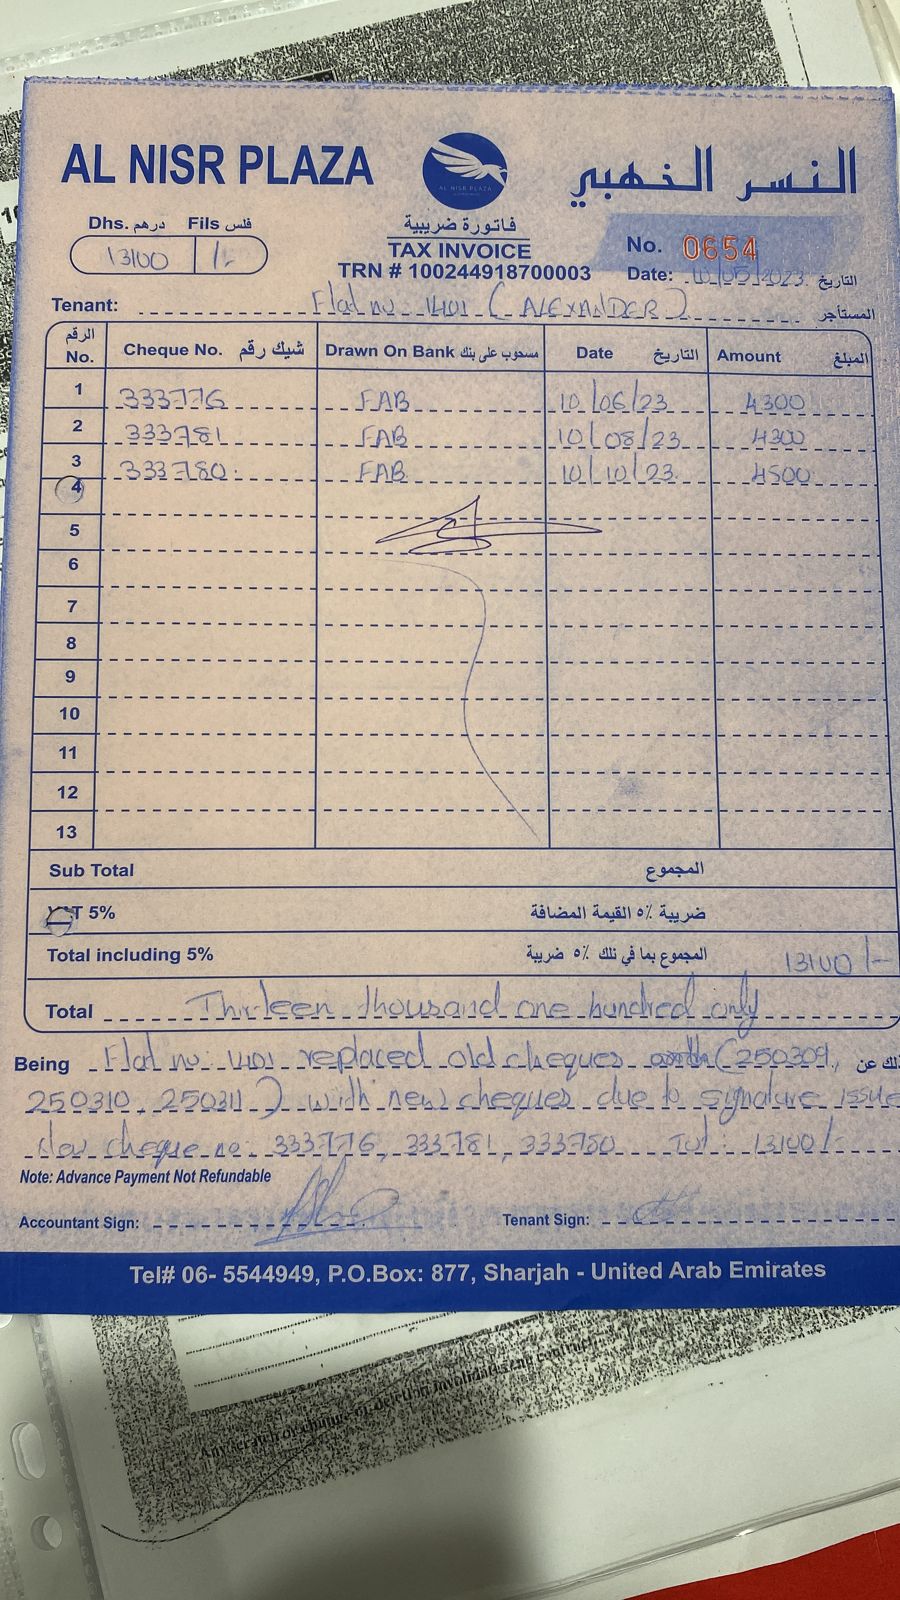 AL NISR PLAZA
AL NISR PLAZA
النسر الذهبي
Dhs. درهم Fils فلس
13100 /-
فاتورة ضريبية
TAX INVOICE
TRN # 100244918700003
No. 0654
Date: 10/05/2023 التاريخ
Tenant: Flat no: 1401 (ALEXANDER) المستأجر
الرقم No. Cheque No. شيك رقم Drawn On Bank مسحوب على بنك Date التاريخ Amount المبلغ
1 333776 FAB 10/06/23 4300
2 333781 FAB 10/08/23 4300
3 333780 FAB 10/10/23 4500
4
5
6
7
8
9
10
11
12
13
Sub Total المجموع
VAT 5% ضريبة ٥٪ القيمة المضافة
Total including 5% المجموع بما في ذلك ٥٪ ضريبة 13100/-
Total Thirteen thousand one hundred only
Being Flat no: 1401 replaced old cheques (250309, ذلك عن
250310, 250311) with new cheques due to signature issue
New cheque no: 333776, 333781, 333780 Tot: 13100/-
Note: Advance Payment Not Refundable
Accountant Sign: Tenant Sign:
Tel# 06- 5544949, P.O.Box: 877, Sharjah - United Arab Emirates